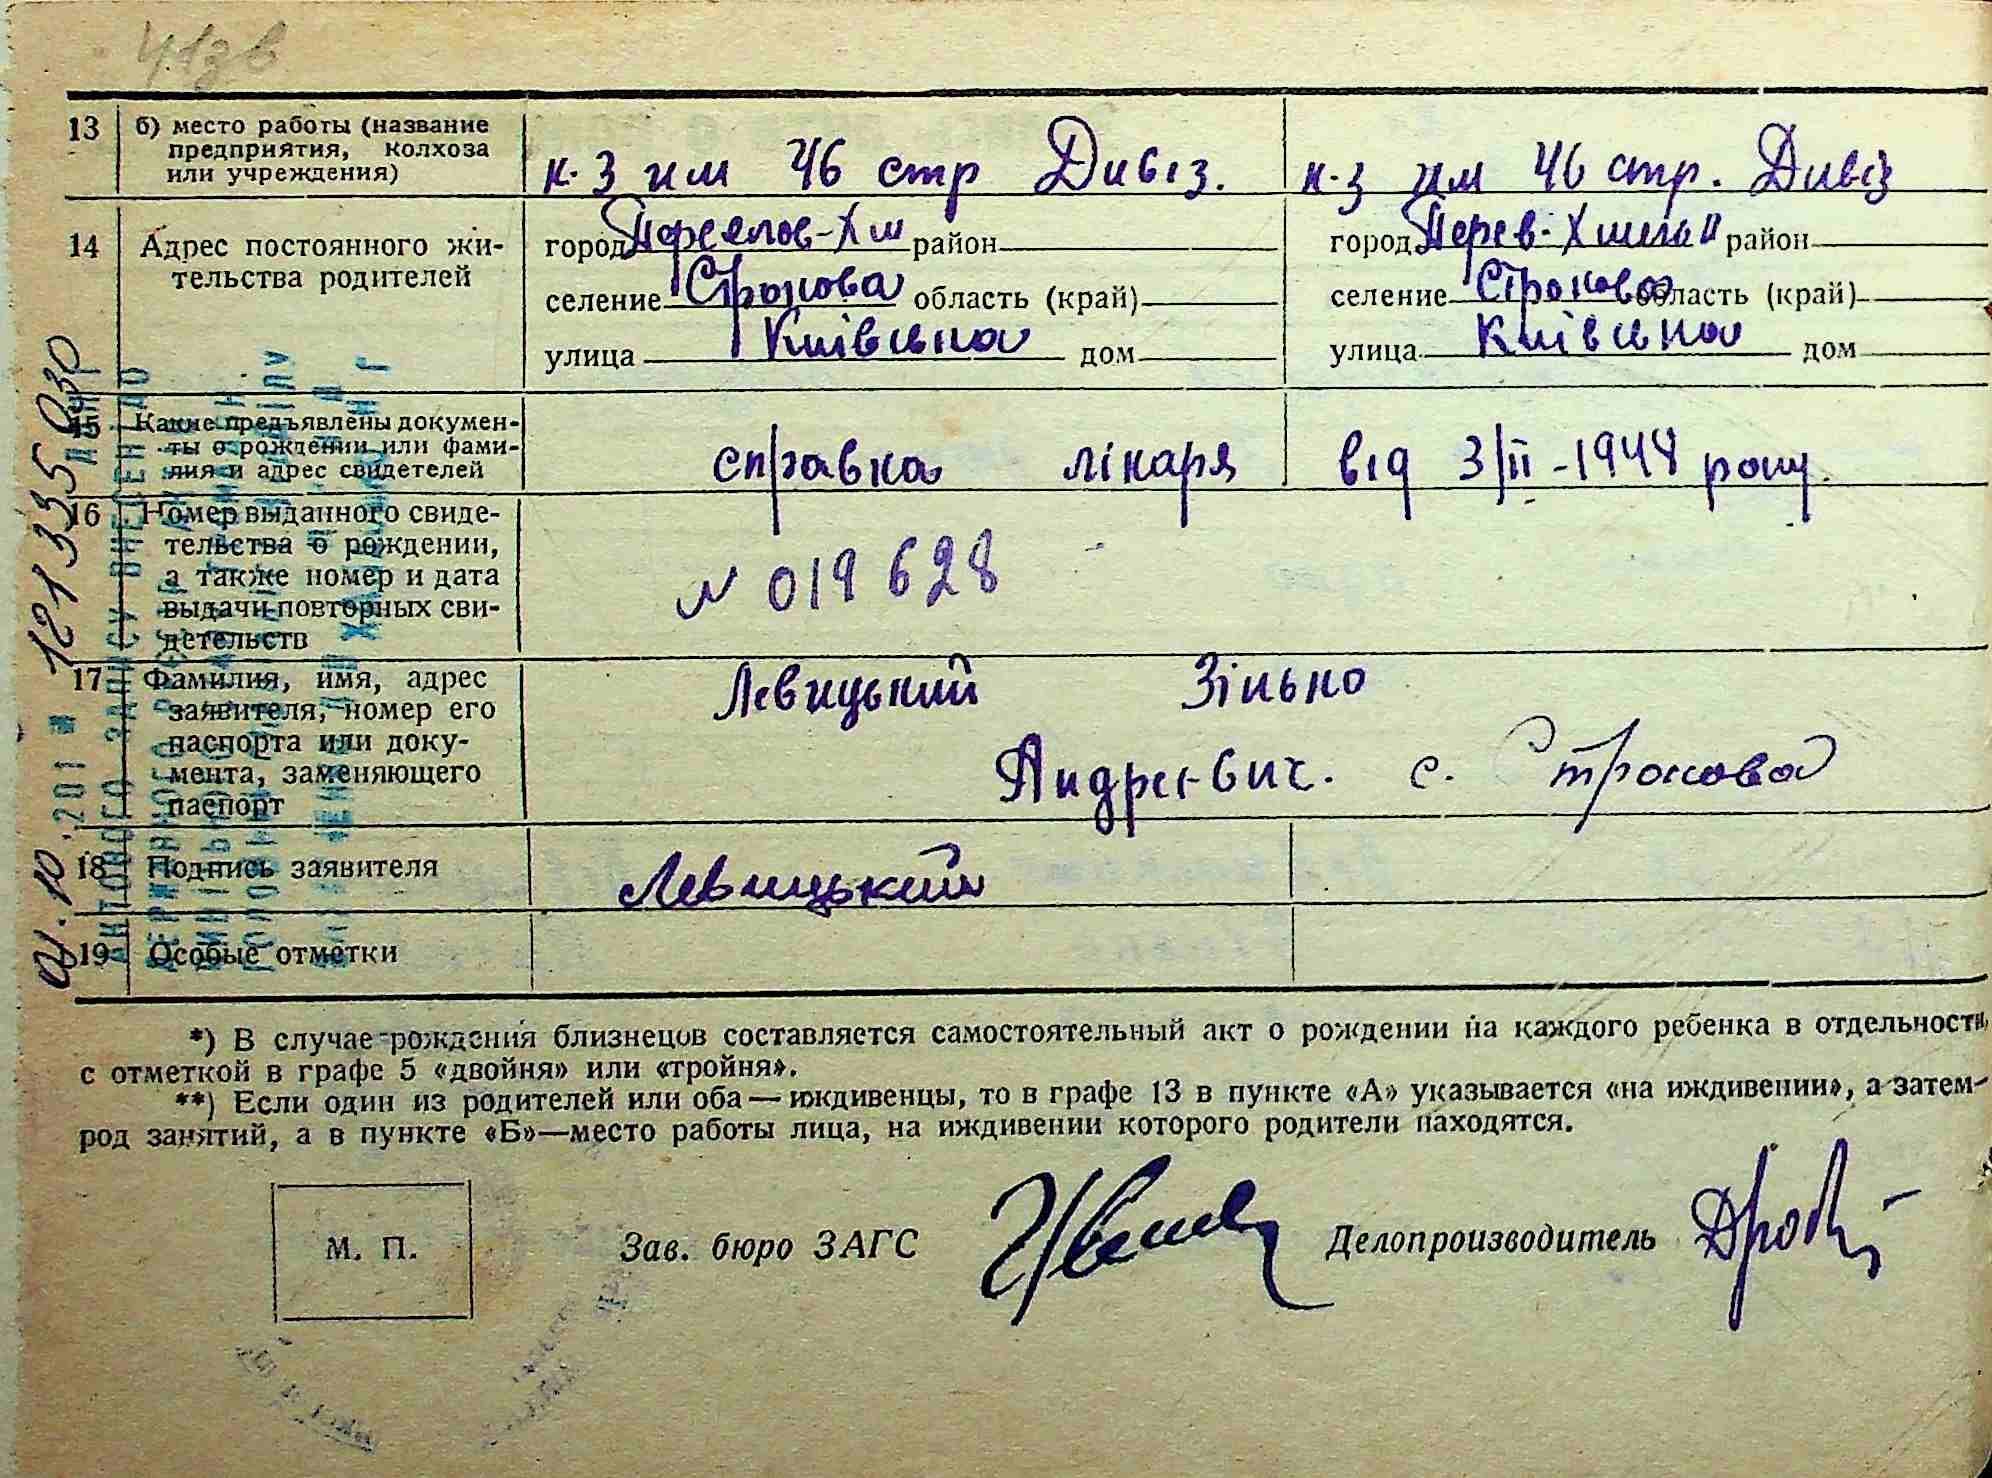 13 б) место работы (название
предприятия, колхоза
или учреждения)
к-з им 46 стр Дивіз. к-з им 46 стр. Дивіз
14 Адрес постоянного жи-
тельства родителей
город Переялов-Хм район город Перев-Хмел район
селение Строкова область (край) селение Строкова область (край)
улица Київська дом улица Київська дом
15 Какие предъявлены докумен-
ты о рождении или фами-
лия и адрес свидетелей
справка лікаря від 3/II-1948 року
16 Номер выданного свиде-
тельства о рождении,
а также номер и дата
выдачи повторных сви-
детельств
N 019628
17 Фамилия, имя, адрес
заявителя, номер его
паспорта или доку-
мента, заменяющего
паспорт
Левицький Зінько
Андреєвич. с. Строкова
18 Подпись заявителя Левицький
19 Особые отметки
*) В случае рождения близнецов составляется самостоятельный акт о рождении на каждого ребенка в отдельности
с отметкой в графе 5 «двойня» или «тройня».
**) Если один из родителей или оба — иждивенцы, то в графе 13 в пункте «А» указывается «на иждивении», а затем—
род занятий, а в пункте «Б»—место работы лица, на иждивении которого родители находятся.
М. П. Зав. бюро ЗАГС Делопроизводитель